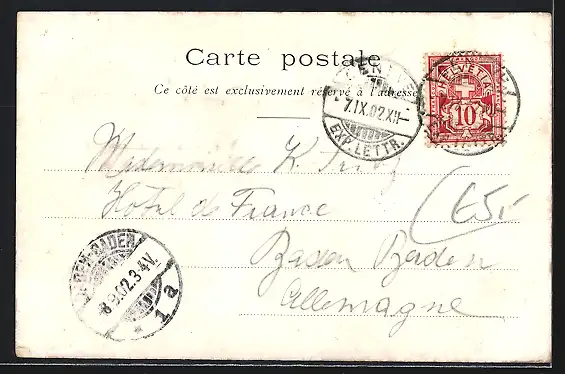 Carte postale
Ce côté est exclusivement réservé à l'adresse
GENÈVE
7.IX.02.XII
EXP. LETTR.
HELVETIA
10
Mademoiselle K.
Hôtel de France
Baden Baden
Allemagne
65
BADEN-BADEN
8.9.02.3-4V.
* 1 a